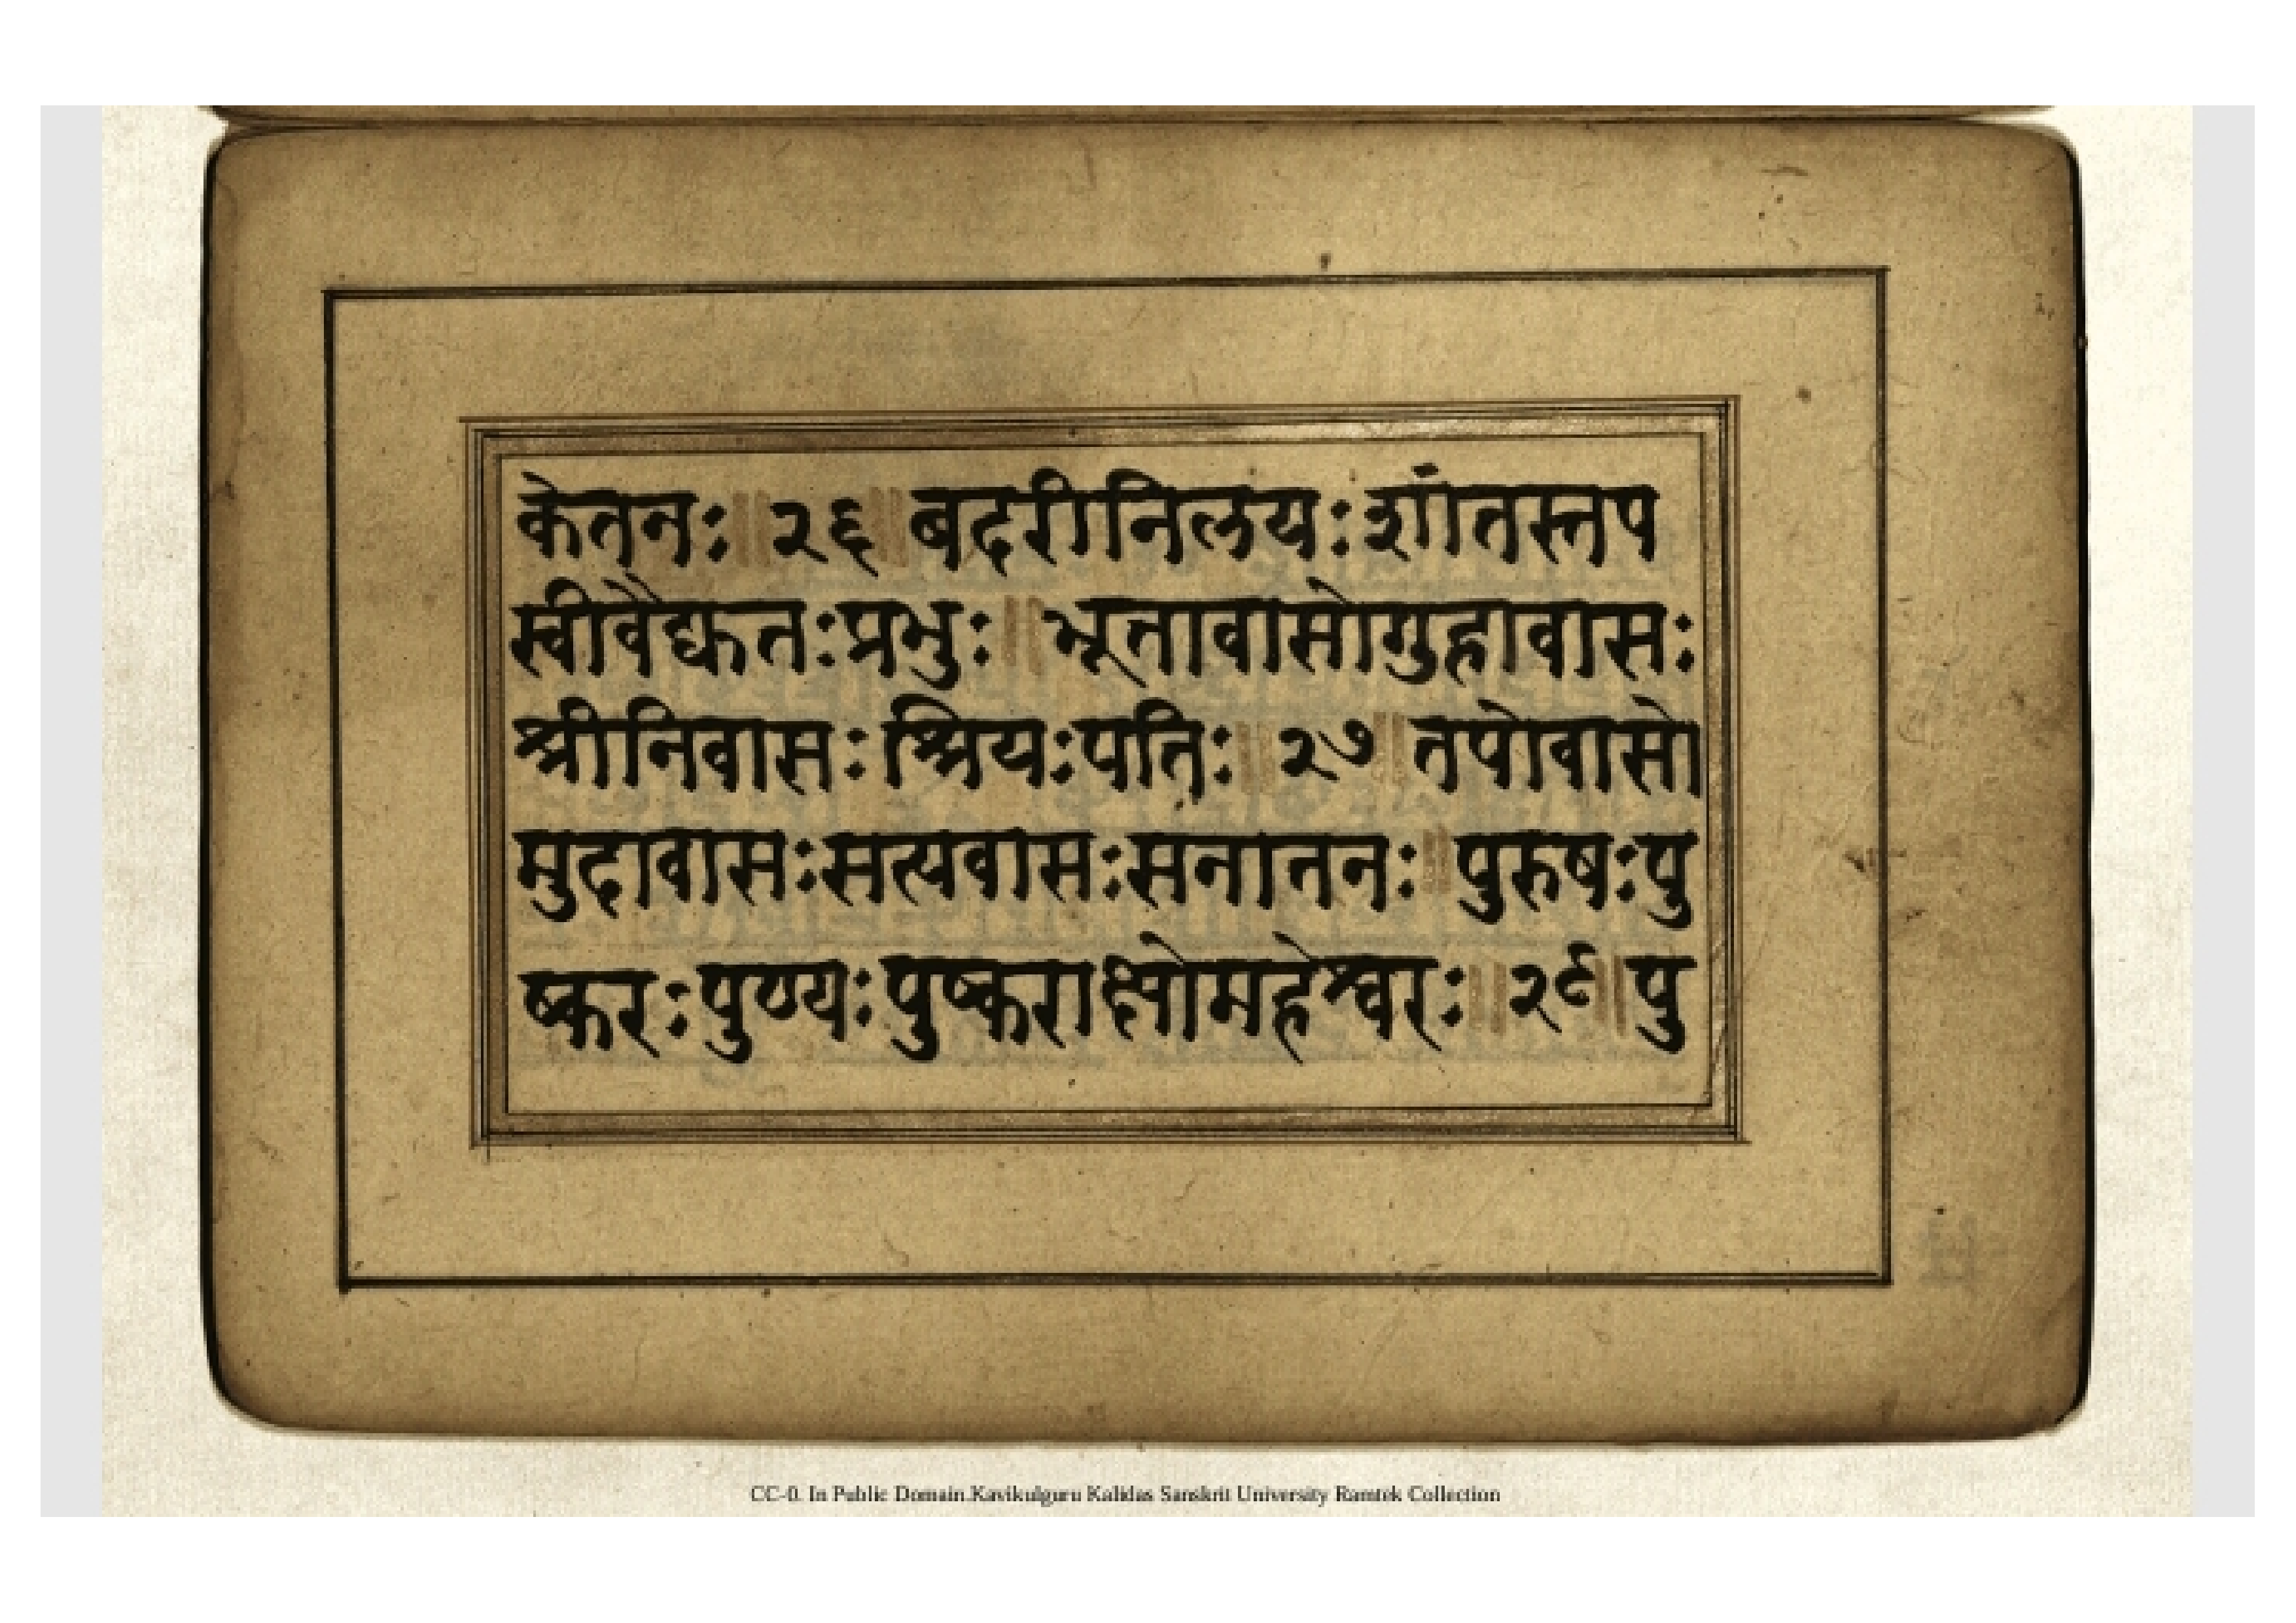 केतनः॥२६॥बदरीनिलयःशांतस्तप
स्वीवैद्युतःप्रभुः॥भूतावासोगुहावासः
श्रीनिवासःश्रियःपतिः॥२७॥तपोवासो
मुदावासःसत्यवासःसनातनः॥पुरुषःपु
ष्करःपुण्यःपुष्कराक्षोमहेश्वरः॥२९॥पु
CC-0. In Public Domain.Kavikulguru Kalidas Sanskrit University Ramtek Collection